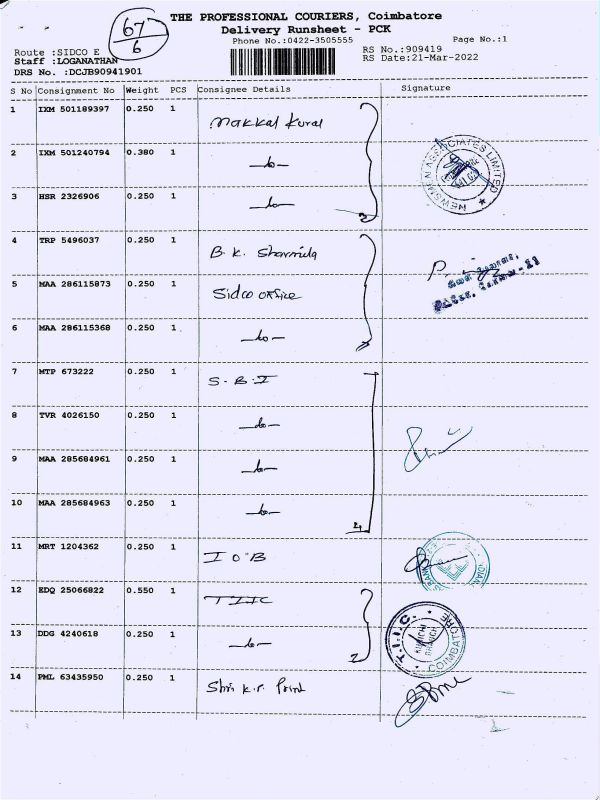 67
6
THE PROFESSIONAL COURIERS, Coimbatore
Delivery Runsheet - PCK
Phone No.:0422-3505555
Page No.:1
Route :SIDCO E
Staff :LOGANATHAN
DRS No. :DCJB90941901
RS No.:909419
RS Date:21-Mar-2022
S No Consignment No Weight PCS Consignee Details Signature
1 IXM 501189397 0.250 1 Makkal Kural
2 IXM 501240794 0.380 1 -do-
NEWSMEN ASSOCIATES LIMITED
3 HSR 2326906 0.250 1 -do- 3
4 TRP 5496037 0.250 1 B.K. Sharmila
5 MAA 286115873 0.250 1 Sidco office
6 MAA 286115368 0.250 1 -do-
7 MTP 673222 0.250 1 S.B.I
8 TVR 4026150 0.250 1 -do-
9 MAA 285684961 0.250 1 -do-
10 MAA 285684963 0.250 1 -do- 4
11 MRT 1204362 0.250 1 I O B
12 EDQ 25066822 0.550 1 TIIC
13 DDG 4240618 0.250 1 -do- 2
T.I.I.C. BRANCH COIMBATORE
14 PML 63435950 0.250 1 Shri K.r. Print